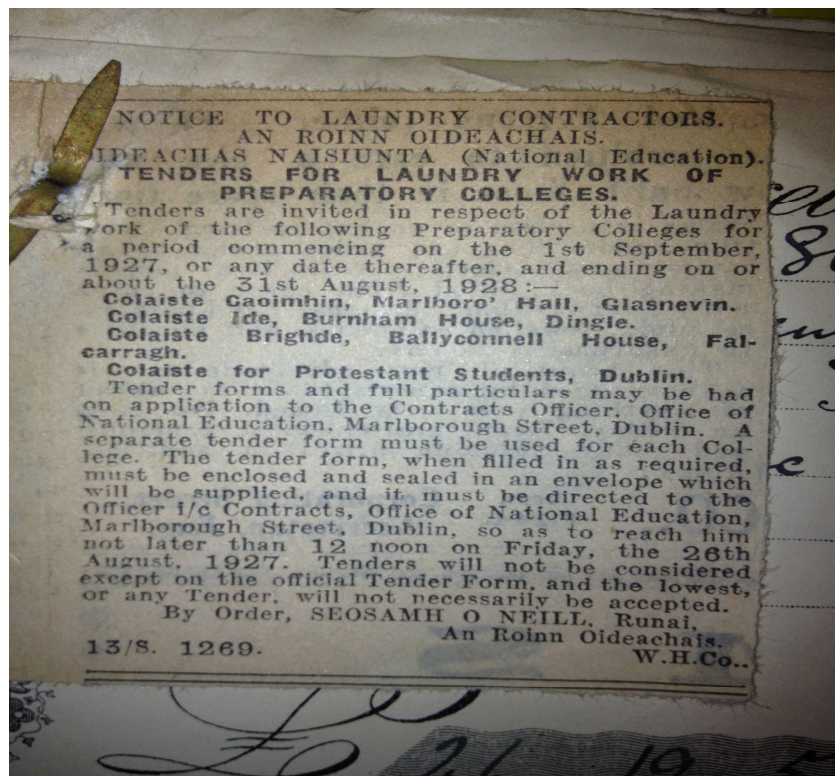 NOTICE TO LAUNDRY CONTRACTORS.
AN ROINN OIDEACHAIS.
OIDEACHAS NAISIUNTA (National Education).
TENDERS FOR LAUNDRY WORK OF
PREPARATORY COLLEGES.
Tenders are invited in respect of the Laundry
work of the following Preparatory Colleges for
a period commencing on the 1st September,
1927, or any date thereafter, and ending on or
about the 31st August, 1928:—
Colaiste Caoimhin, Marlboro' Hall, Glasnevin.
Colaiste Ide, Burnham House, Dingle.
Colaiste Brighde, Ballyconnell House, Fal-
carragh.
Colaiste for Protestant Students, Dublin.
Tender forms and full particulars may be had
on application to the Contracts Officer, Office of
National Education, Marlborough Street, Dublin. A
separate tender form must be used for each Col-
lege. The tender form, when filled in as required,
must be enclosed and sealed in an envelope which
will be supplied, and it must be directed to the
Officer i/c Contracts, Office of National Education,
Marlborough Street, Dublin, so as to reach him
not later than 12 noon on Friday, the 26th
August, 1927. Tenders will not be considered
except on the official Tender Form, and the lowest,
or any Tender, will not necessarily be accepted.
By Order, SEOSAMH O NEILL, Runai,
An Roinn Oideachais.
13/S. 1269.
W.H.Co..